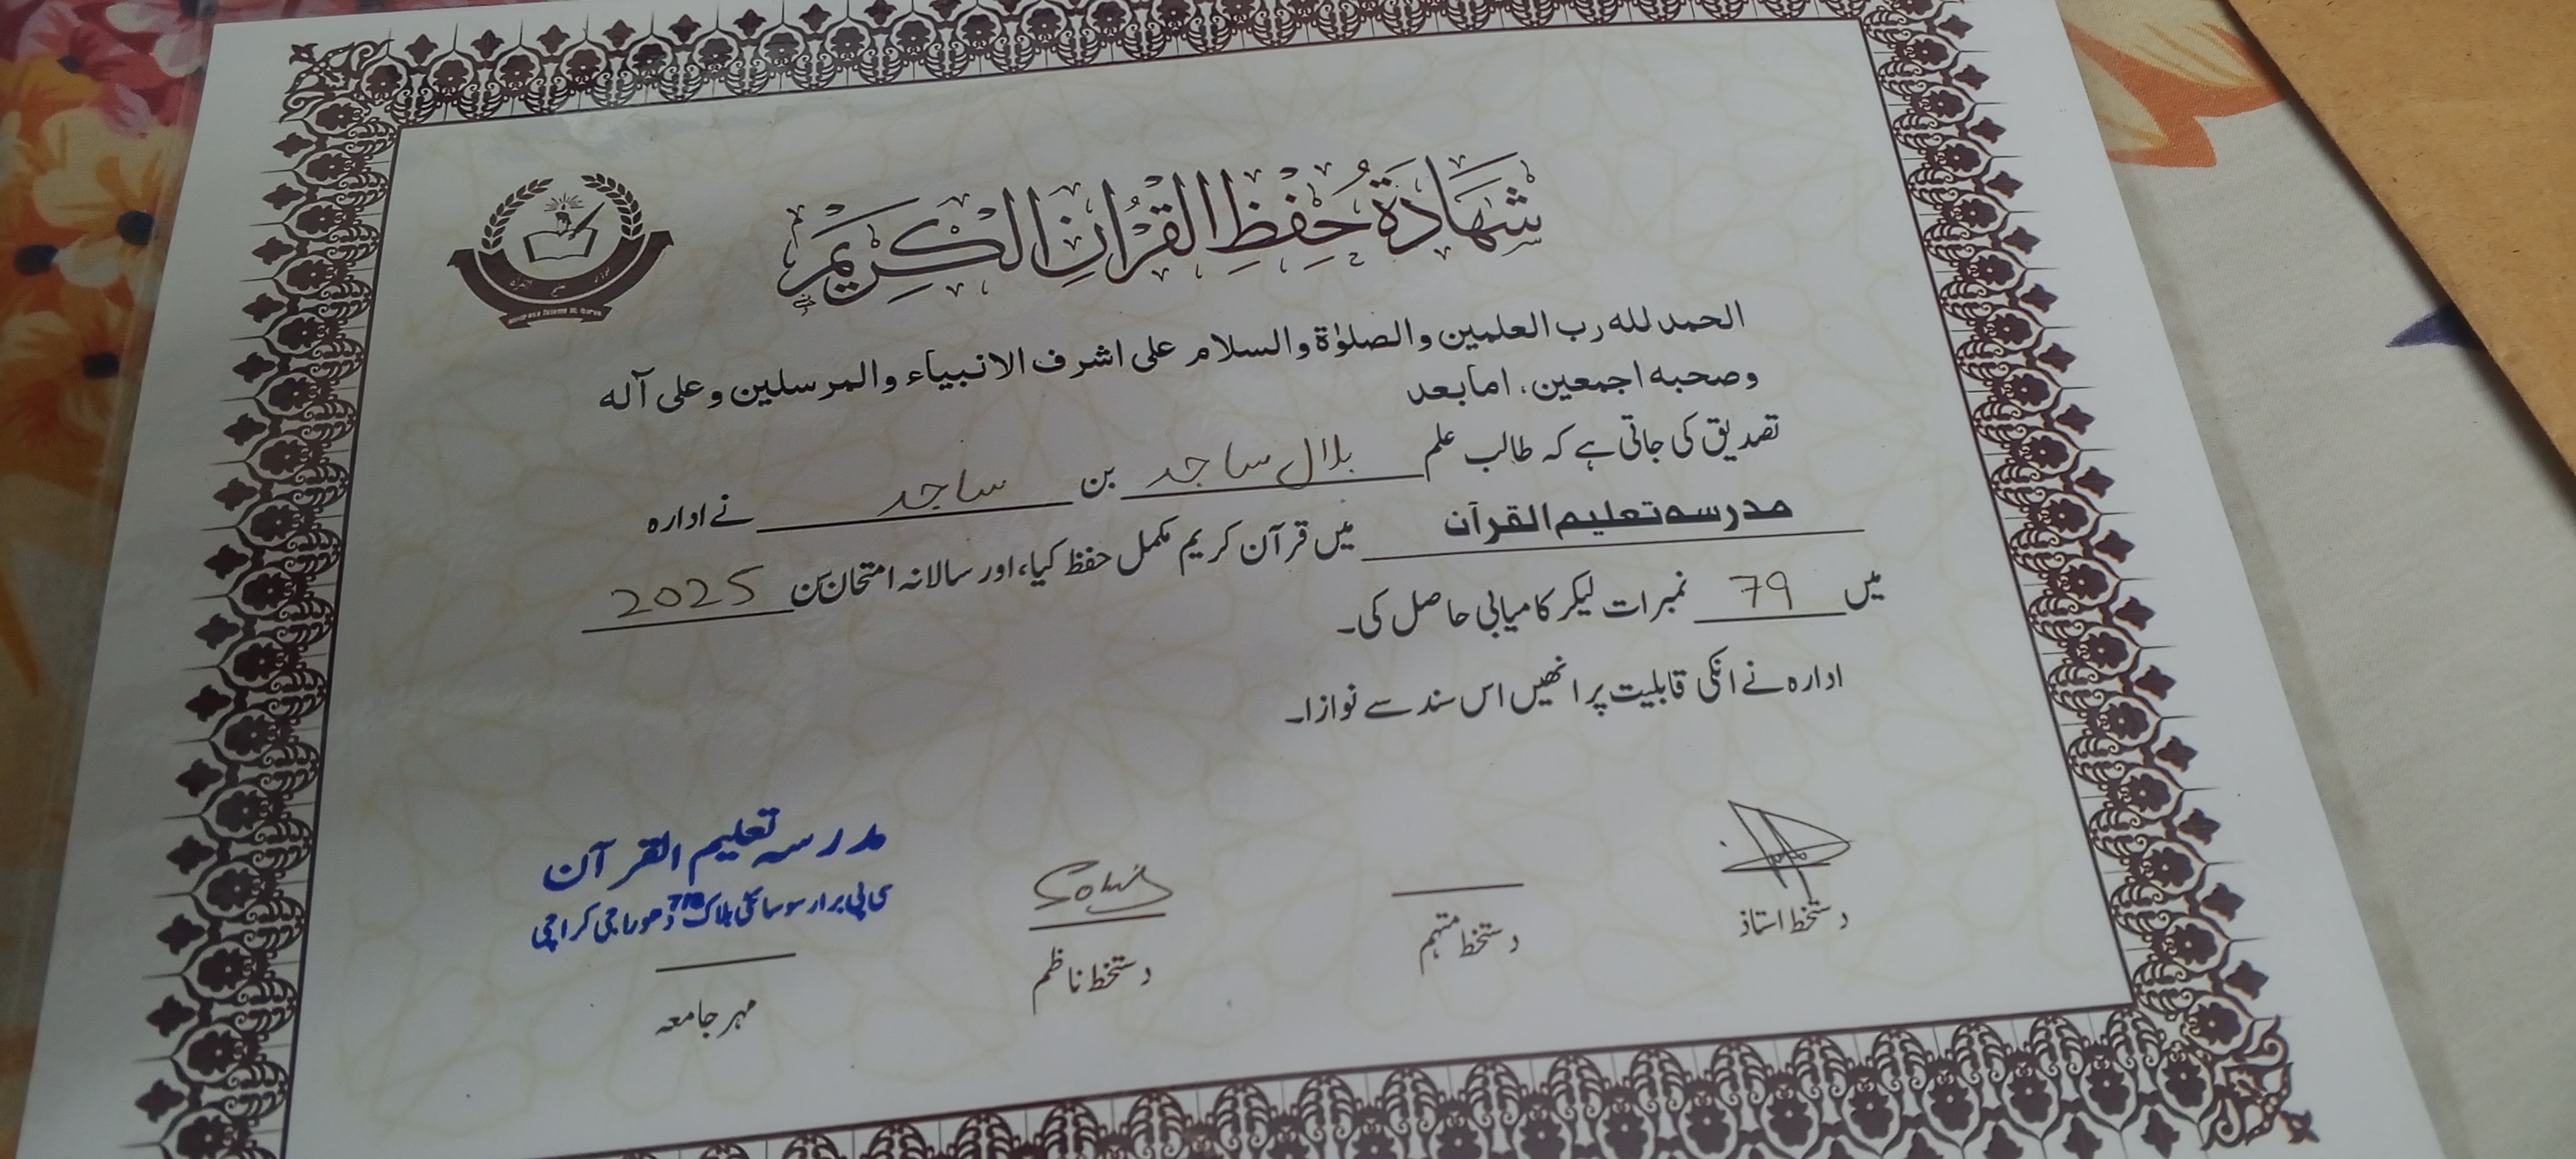 شهادة حفظ القرآن الكريم
الحمد لله رب العلمين والصلوٰة والسلام على اشرف الانبياء والمرسلين وعلى آله
وصحبه اجمعين، اما بعد
تصدیق کی جاتی ہے کہ طالب علم بلال ساجد بن ساجد نے ادارہ
مدرسه تعليم القرآن میں قرآن کریم مکمل حفظ کیا، اور سالانہ امتحان سن 2025
میں 79 نمبرات لیکر کامیابی حاصل کی۔
ادارہ نے انکی قابلیت پر انھیں اس سند سے نوازا۔
دستخط استاذ
دستخط مہتمم
دستخط ناظم
مدرسہ تعلیم القرآن
سی پی برار سوسائٹی بلاک 7/8 دھوراجی کراچی
مہر جامعہ